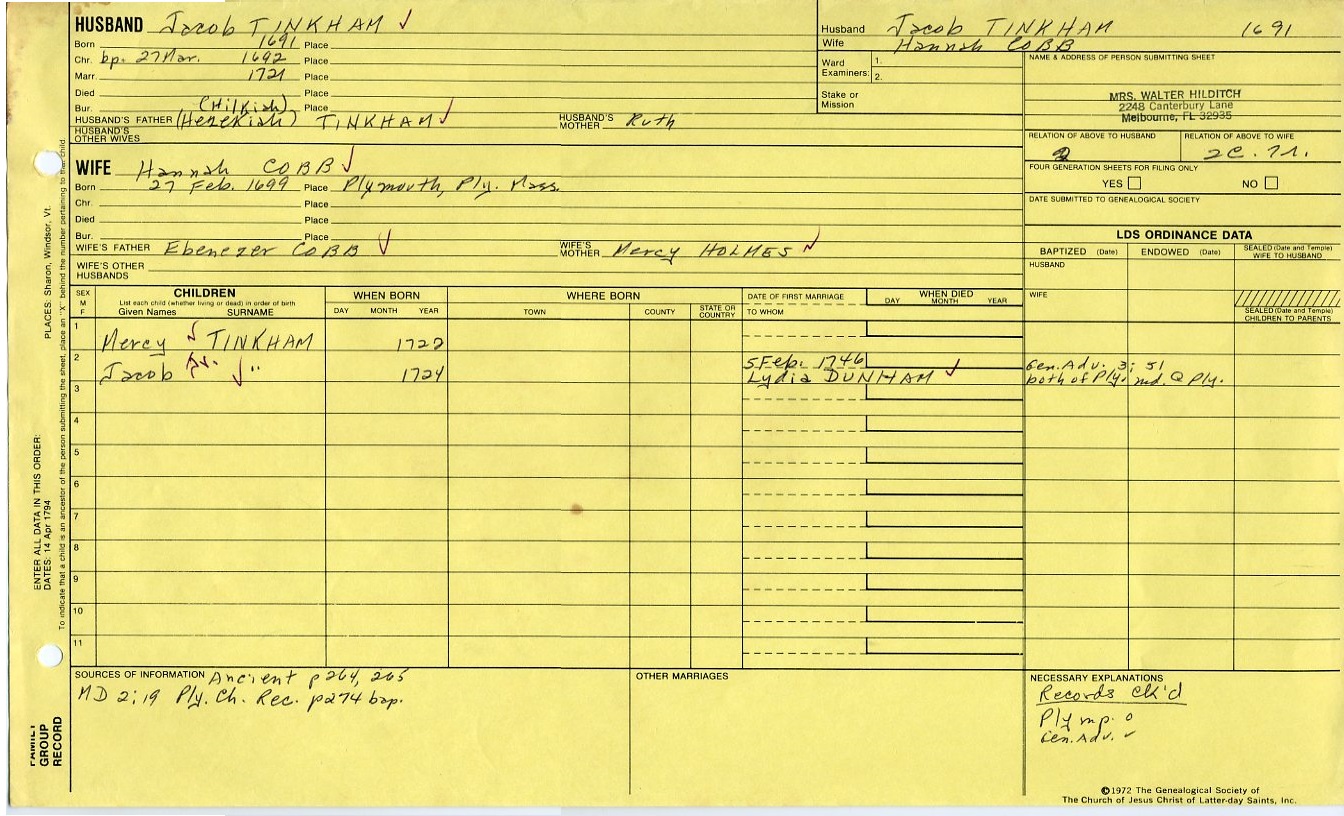 HUSBAND Jacob TINKHAM ✓
Born 1691 Place
Chr. bp. 27 Mar. 1692 Place
Marr. 1721 Place
Died Place
Bur. (Hilkiah) Place
HUSBAND'S FATHER (Hezekiah) TINKHAM ✓ HUSBAND'S MOTHER Ruth
HUSBAND'S OTHER WIVES
Husband Jacob TINKHAM 1691
Wife Hannah COBB
Ward Examiners: 1.
2.
Stake or Mission
NAME & ADDRESS OF PERSON SUBMITTING SHEET
MRS. WALTER HILDITCH
2248 Canterbury Lane
Melbourne, FL 32935
RELATION OF ABOVE TO HUSBAND RELATION OF ABOVE TO WIFE
2C.7r.
FOUR GENERATION SHEETS FOR FILING ONLY
YES NO
DATE SUBMITTED TO GENEALOGICAL SOCIETY
WIFE Hannah COBB ✓
Born 27 Feb. 1699 Place Plymouth, Ply. Mass.
Chr. Place
Died Place
Bur. Place
WIFE'S FATHER Ebenezer COBB ✓ WIFE'S MOTHER Mercy HOLMES ✓
WIFE'S OTHER HUSBANDS
LDS ORDINANCE DATA
BAPTIZED (Date) ENDOWED (Date) SEALED (Date and Temple) WIFE TO HUSBAND
HUSBAND
WIFE
SEALED (Date and Temple) CHILDREN TO PARENTS
SEX M F
CHILDREN
List each child (whether living or dead) in order of birth
Given Names SURNAME
WHEN BORN
DAY MONTH YEAR
WHERE BORN
TOWN COUNTY STATE OR COUNTRY
DATE OF FIRST MARRIAGE
TO WHOM
WHEN DIED
DAY MONTH YEAR
1 Mercy ✓ TINKHAM 1722
2 Jacob Jr. ✓ " 1724 5 Feb. 1746 Gen. Adv. 3; 51
Lydia DUNHAM ✓ both of Ply. md. @ Ply.
3
4
5
6
7
8
9
10
11
SOURCES OF INFORMATION Ancient p264, 265
MD 2;19 Ply. Ch. Rec. p274 bap.
OTHER MARRIAGES
NECESSARY EXPLANATIONS
Records ck'd
Plymp. o
Gen. Adv. ✓
©1972 The Genealogical Society of
The Church of Jesus Christ of Latter-day Saints, Inc.
PLACES: Sharon, Windsor, Vt.
ENTER ALL DATA IN THIS ORDER:
DATES: 14 Apr 1794
To indicate that a child is an ancestor of the person submitting the sheet, place an "X" behind the number pertaining to that child.
FAMILY GROUP RECORD